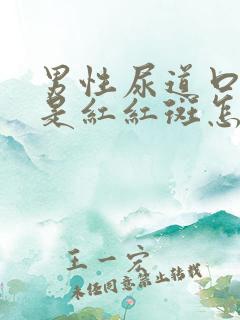 男性尿道口
是红红斑怎
王一宏
未经同意禁止转载